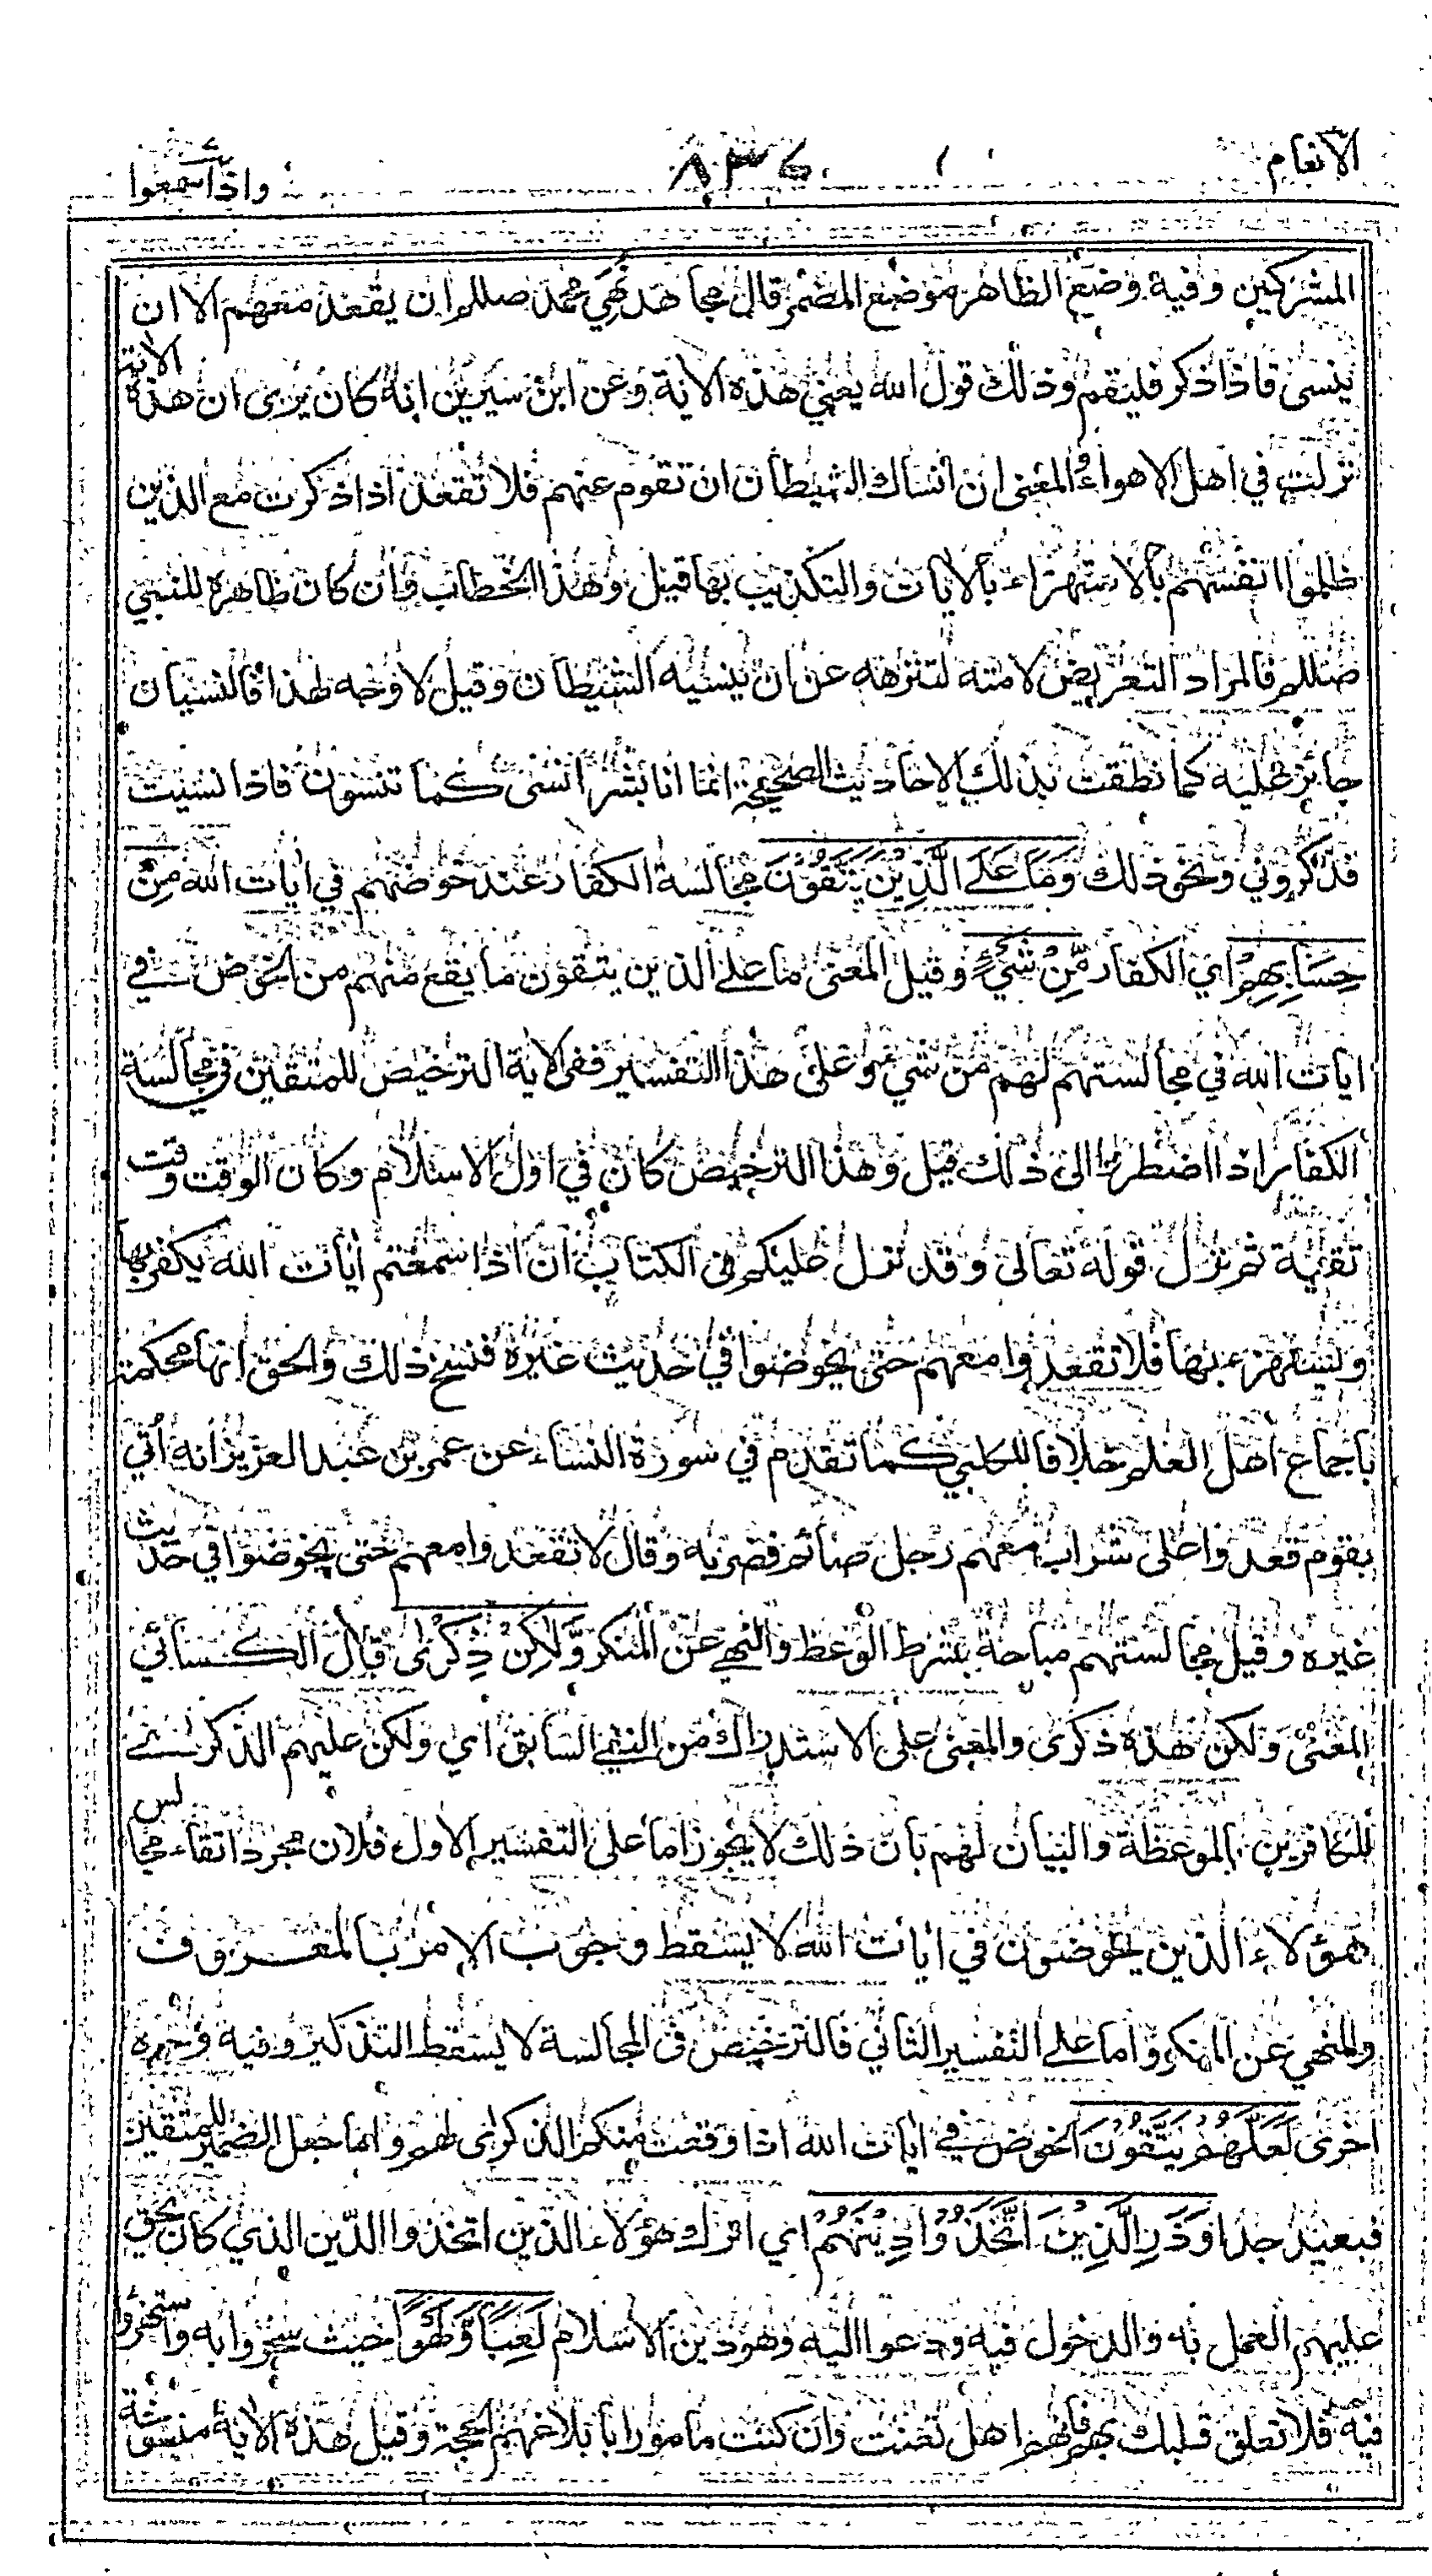 الانعام ٨٣٤ واذا سمعوا
المشركين وفيه وضع الظاهر موضع المضمر قال مجاهد نهي محمد صللم ان يقعد معهم الا ان
ينسى فاذا ذكر فليقم وذلك قول الله يعني هذه الاية وعن ابن سيرين انه كان يرى ان هذه الاية
نزلت في اهل الاهواء والمعنى ان انساك الشيطان ان تقوم عنهم فلا تقعد اذا ذكرت مع الذين
ظلموا انفسهم بالاستهزاء بالايات والتكذيب بها قيل وهذا الخطاب وان كان ظاهره للنبي
صللم فالمراد التعريض لامته لتنزهه عن ان ينسيه الشيطان وقيل لا وجه لهذا فالنسيان
جائز عليه كما نطقت بذلك الاحاديث الصحيحة انما انا بشر انسى كما تنسون فاذا نسيت
فذكروني ونحو ذلك وَمَا عَلَى الَّذِيْنَ يَتَّقُوْنَ مجالسة الكفار عند خوضهم في ايات الله مِنْ
حِسَابِهِمْ اي الكفار مِّنْ شَيْءٍ وقيل المعنى ما على الذين يتقون ما يقع منهم من الخوض في
ايات الله في مجالستهم لهم من شيء وعلى هذا التفسير ففي الاية الترخيص للمتقين في مجالسة
الكفار اذا اضطروا الى ذلك قيل وهذا الترخيص كان في اول الاسلام وكان الوقت وقت
تقية ثم نزل قوله تعالى وقد نزل عليكم في الكتاب ان اذا سمعتم ايات الله يكفر بها
ويستهزء بها فلا تقعدوا معهم حتى يخوضوا في حديث غيره فنسخ ذلك والحق انها محكمة
باجماع اهل العلم خلافا للكلبي كما تقدم في سورة النساء عن عمر بن عبد العزيز انه اتي
بقوم قعدوا على شراب معهم رجل صائم فضربه وقال لا تقعدوا معهم حتى يخوضوا في حديث
غيره وقيل مجالستهم مباحة بشرط الوعظ والنهي عن المنكر وَّلٰكِنْ ذِكْرٰى قال الكسائي
المعنى ولكن هذه ذكرى والمعنى على الاستدراك من النفي السابق اي ولكن عليهم الذكرى
للكافرين بالموعظة والبيان لهم بان ذلك لا يجوز اما على التفسير الاول فلان مجرد اتقاء مجالس
هؤلاء الذين يخوضون في ايات الله لا يسقط وجوب الامر بالمعروف
والنهي عن المنكر واما على التفسير الثاني فالترخيص في المجالسة لا يسقط التذكير وفيه وجوه
اخرى لَعَلَّهُمْ يَتَّقُوْنَ الخوض في ايات الله اذا وقعت منكم الذكرى لهم واما جعل الضمير للمتقين
فبعيد جدا وَذَرِ الَّذِيْنَ اتَّخَذُوْا دِيْنَهُمْ اي اترك هؤلاء الذين اتخذوا الدين الذي كان يحق
عليهم العمل به والدخول فيه ودعوا اليه وهو دين الاسلام لَعِبًا وَّلَهْوًا حيث سخروا به واستهزؤا
فيه فلا تعلق قلبك بهم فانهم اهل تعنت وان كنت مامورا بابلاغهم الحجة وقيل هذه الاية منسوخة